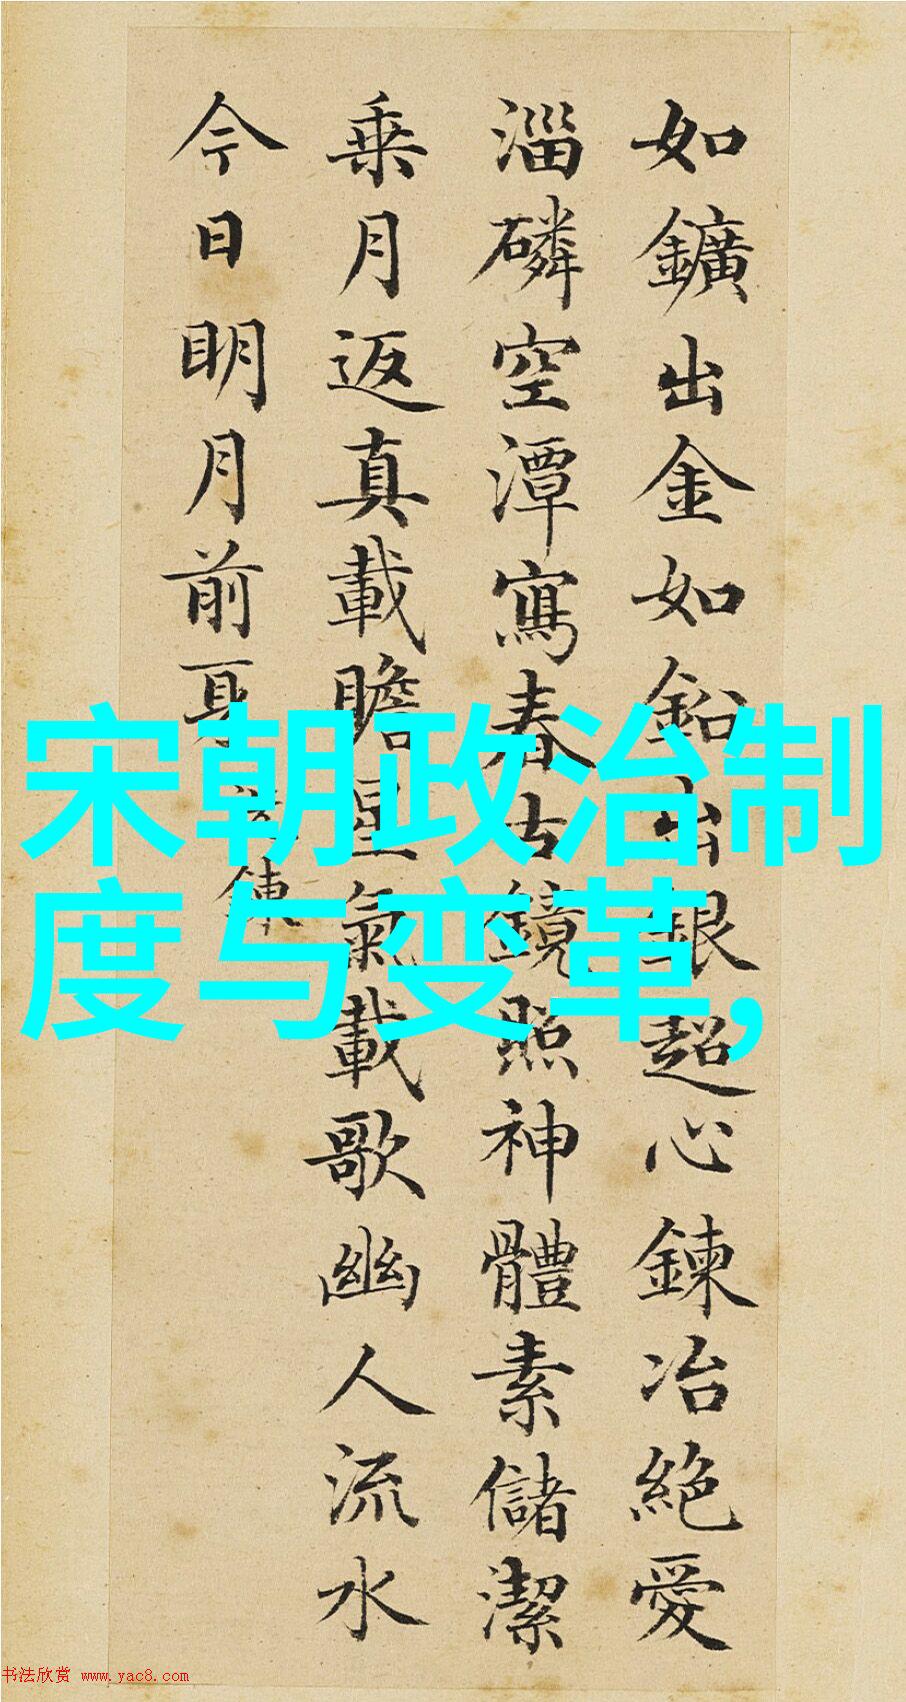 如鑛出金如鉛出銀超心鍊冶絕愛
淄磷空潭寫春古鏡照神體素儲潔
乘月返真載瞻星氣載歌幽人流水
今日明月前身
洗鍊
宋朝政治制
度与变革,
书法欣赏 www.yac8.com